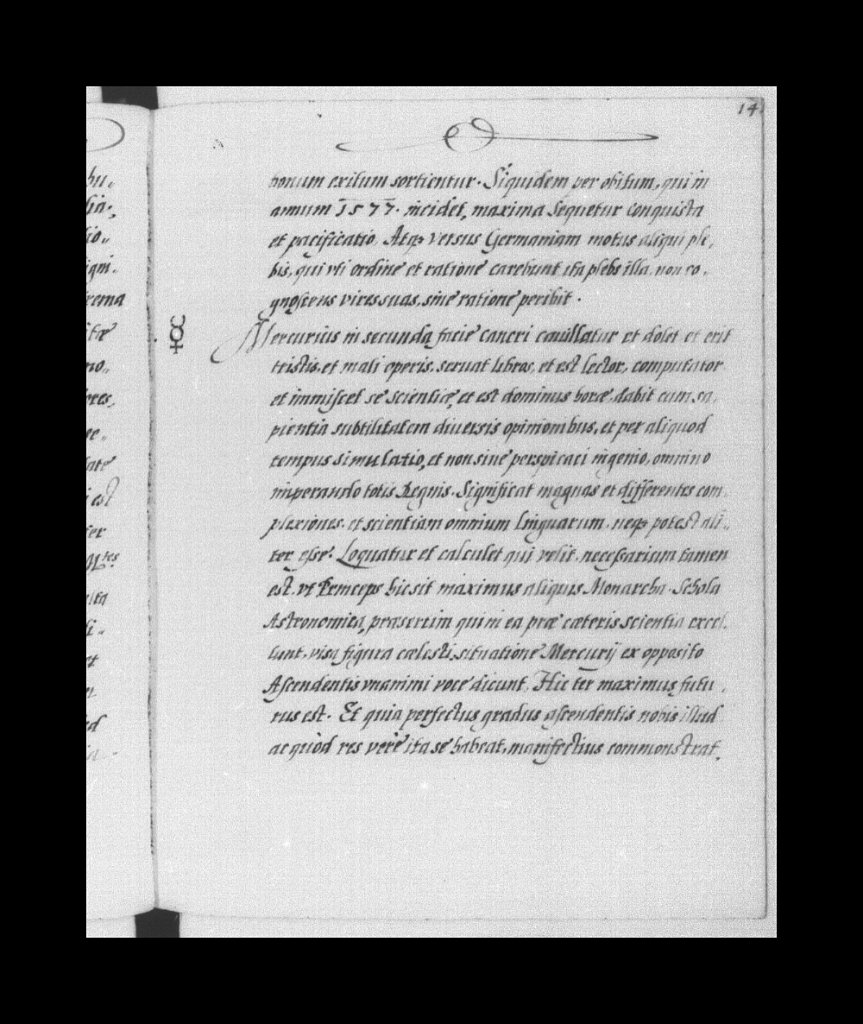 14
bonum exilum sortientur. Siquidem per obitum, qui in
annum 1577. incidet, maxima sequetur conquista
et pacificatio. Atq3 versus Germaniam motus aliqui ple„
bis, qui vti ordine et ratione carebunt ita plebs illa, non co„
gnoscens vires suas, sine ratione peribit.
☿ Mercurius in secunda facie cancri cauillatur et dolet et erit
tristis, et mali operis, seruat libros, et est lector, computator
et immiscet se scientiæ, et est dominus horæ, dabit cum sa„
pientia subtilitatem diuersis opinionibus, et per aliquod
tempus simulatio, et non sine perspicaci ingenio, omnino
imperando totis Regnis. Significat magnas et differentes com„
plexiones, et scientiam omnium linguarum, neq3 potest ali„
ter esse. Loquatur et calculet qui velit, necessarium tamen
est, vt Princeps hic sit maximus aliquis Monarcha. Schola
Astronomica, præsertim qui in ea præ cæteris scientia excel„
lunt, visa figura cælesti, situatione Mercurij ex opposito
Ascendentis vnanimi voce dicunt, Hic ter maximus futu„
rus est. Et quia perfectus gradus ascendentis nobis illud
ac quòd res verè ita se habeat, manifestius commonstrat,
bu„
lia„
lio„
igni„
rema
itæ
mo„
ores,
se„
late
i est
fer
lta
li„
et
ed